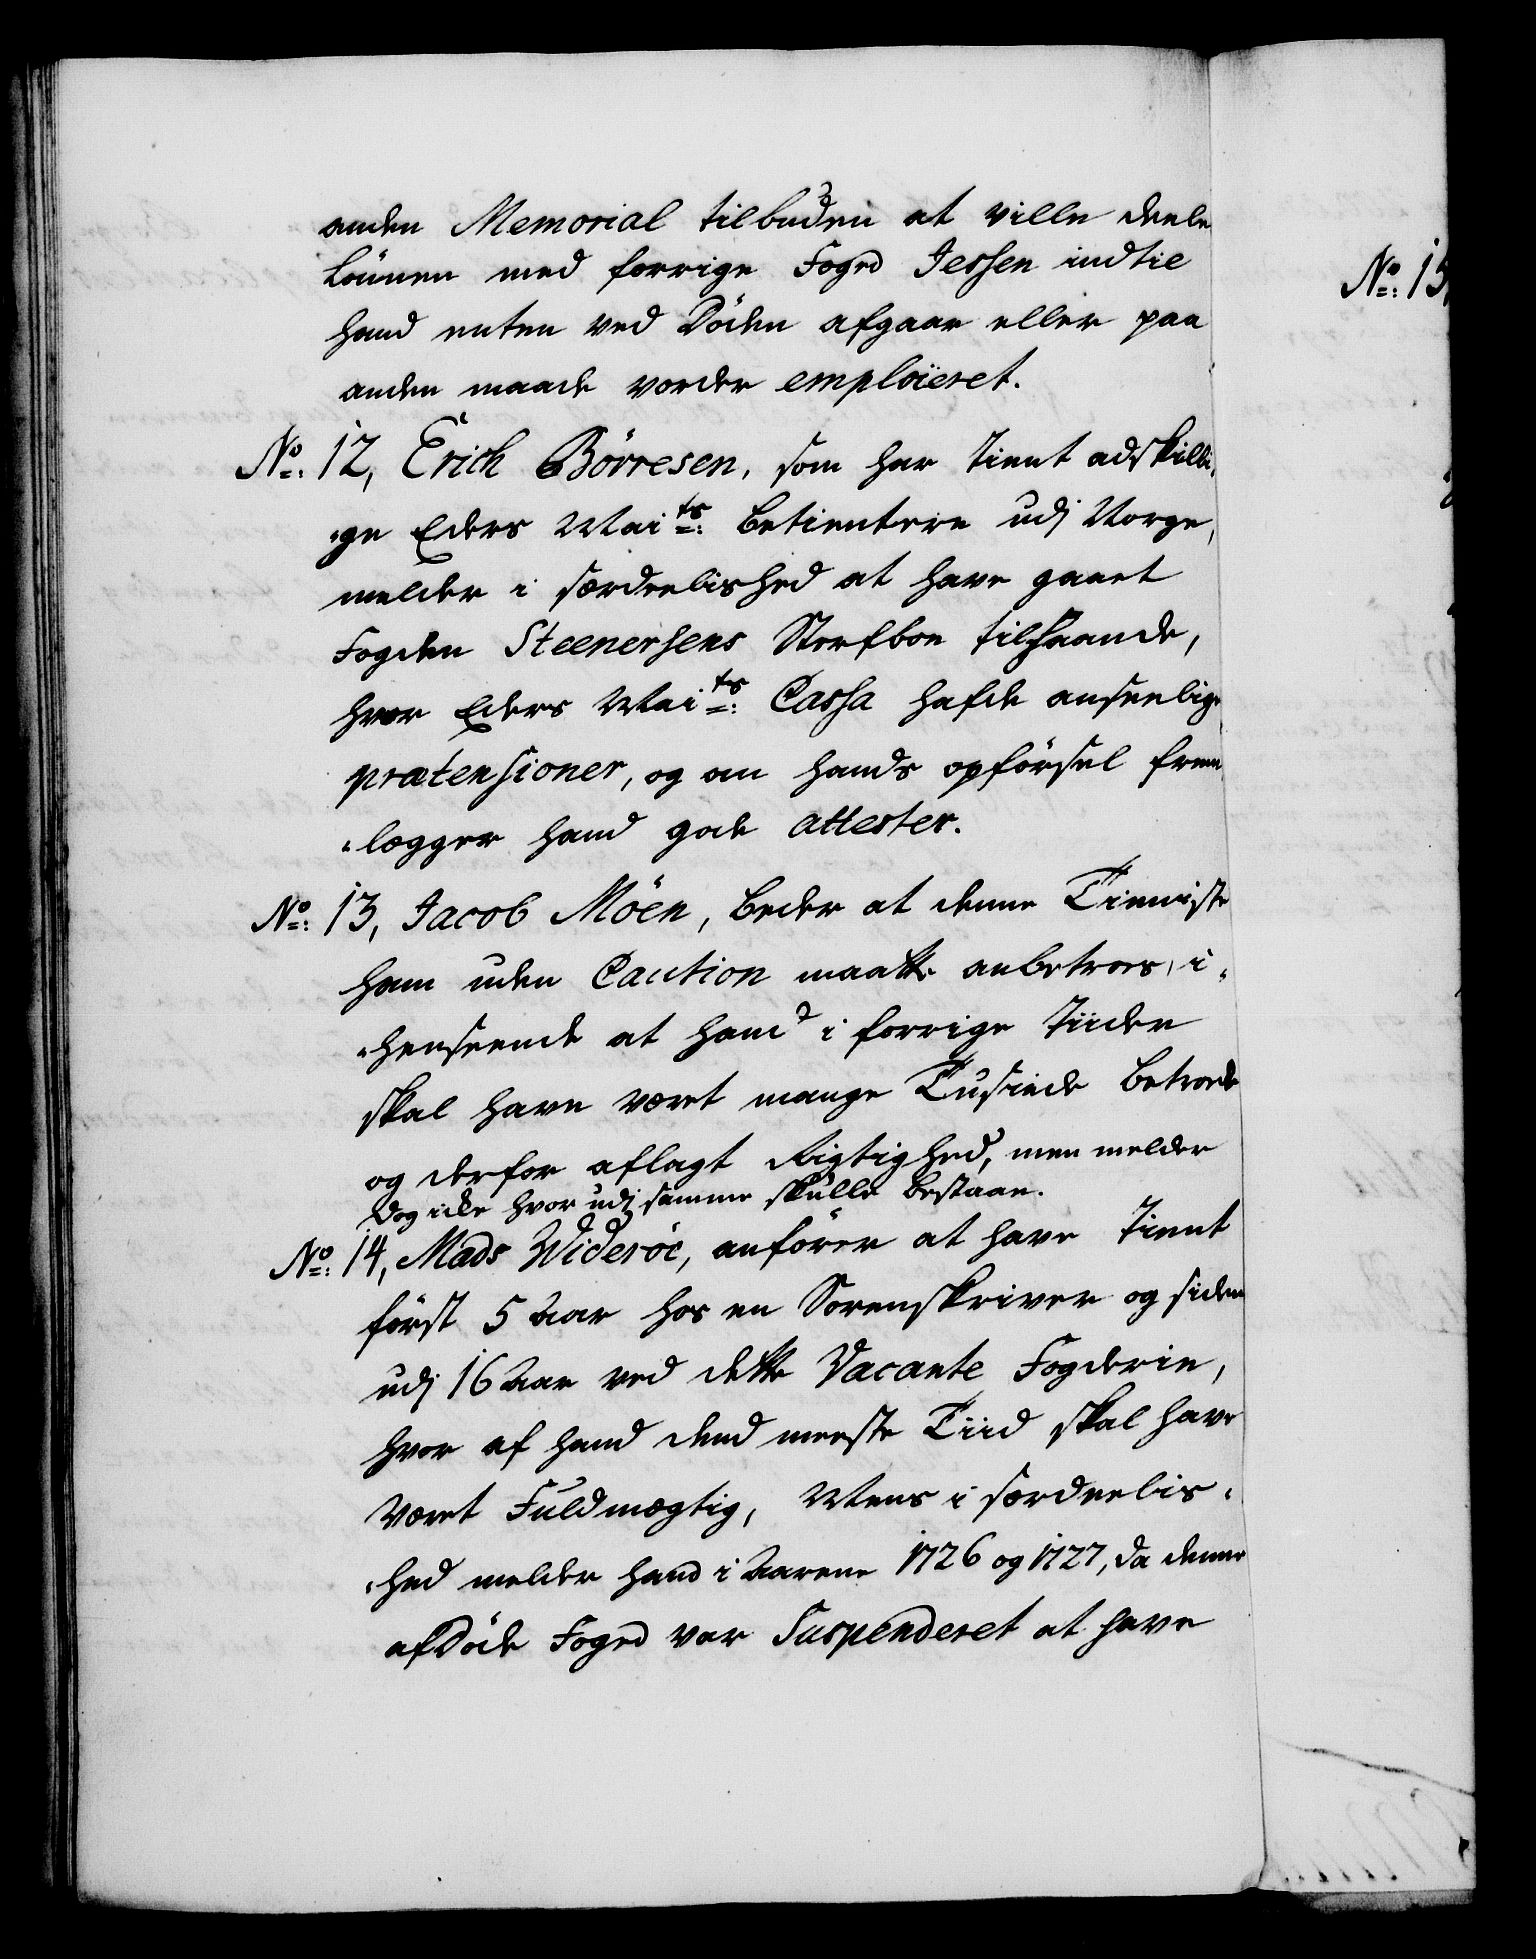 anden Memorial tilbuden at ville deele
Lönnen med forrige Foged Jessen indtil
hand enten ved Döden afgaar eller paa
anden maade vorder emploieret.
No: 12, Erich Börresen, som har tient adskilli,
,ge Eders Maits: betientere udj Norge,
melder i særdeelished at have gaaet
Fogden Steenersens Sterfboe tilhaande,
hvor Eders Maits: Cassa hafde anseelige
prætensioner, og om hands opförsel frem
,lægger hand gode attester.
No: 13, Jacob Möen, beder at denne Tieniste
ham uden Caution maatte anbetroes, i,
,henseende at hand i forrige Tiider
skal have været mange Tusinde betroede
og derfor aflagt Rigtighed, men melder
dog icke hvor udj samme skulle bestaae.
No: 14, Mads Wideröe, anförer at have tient
först 5 Aar hos en Sorenskriver og siden
udj 16 Aar ved dette Vacante Fogderie,
hvor af hand dend meeste Tiid skal have
været Fuldmægtig, Mens i særdeelis,
,hed melder hand i Aarene 1726 og 1727, da denne
afdöde Foged var Suspenderet at have
No: 15,